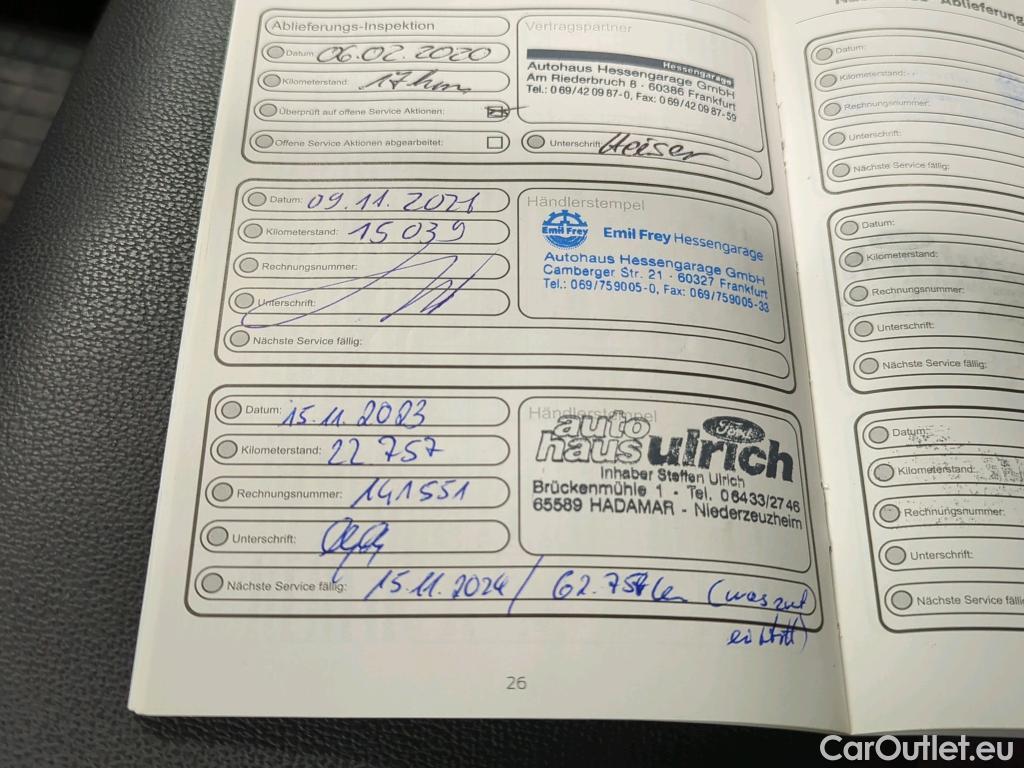 Ablieferungs-Inspektion
Datum: 06.02.2020
Kilometerstand: 17 km
Überprüft auf offene Service Aktionen:
Offene Service Aktionen abgearbeitet:
Vertragspartner
Hessengarage
Autohaus Hessengarage GmbH
Am Riederbruch 8 - 60386 Frankfurt
Tel.: 0 69/42 09 87-0, Fax: 0 69/42 09 87-59
Unterschrift:
Datum: 09.11.2021
Kilometerstand: 15 039
Rechnungsnummer:
Unterschrift:
Nächste Service fällig:
Händlerstempel
Emil Frey
Emil Frey Hessengarage
Autohaus Hessengarage GmbH
Camberger Str. 21 - 60327 Frankfurt
Tel.: 069/759005-0, Fax: 069/759005-33
Datum: 15.11.2023
Kilometerstand: 22 757
Rechnungsnummer: 141551
Unterschrift:
Nächste Service fällig: 15.11.2024 / 62.757 km (was zut
Händlerstempel
auto
haus ulrich
Ford
Inhaber Steffen Ulrich
Brückenmühle 1 - Tel. 06433/2746
65589 HADAMAR - Niederzeuzheim
26
Ablieferung
Datum:
Kilometerstand:
Rechnungsnummer:
Unterschrift:
Nächste Service fällig:
Datum:
Kilometerstand:
Rechnungsnummer:
Unterschrift:
Nächste Service fällig:
Datum:
Kilometerstand:
Rechnungsnummer:
Unterschrift:
Nächste Service fälli
CarOutlet.eu